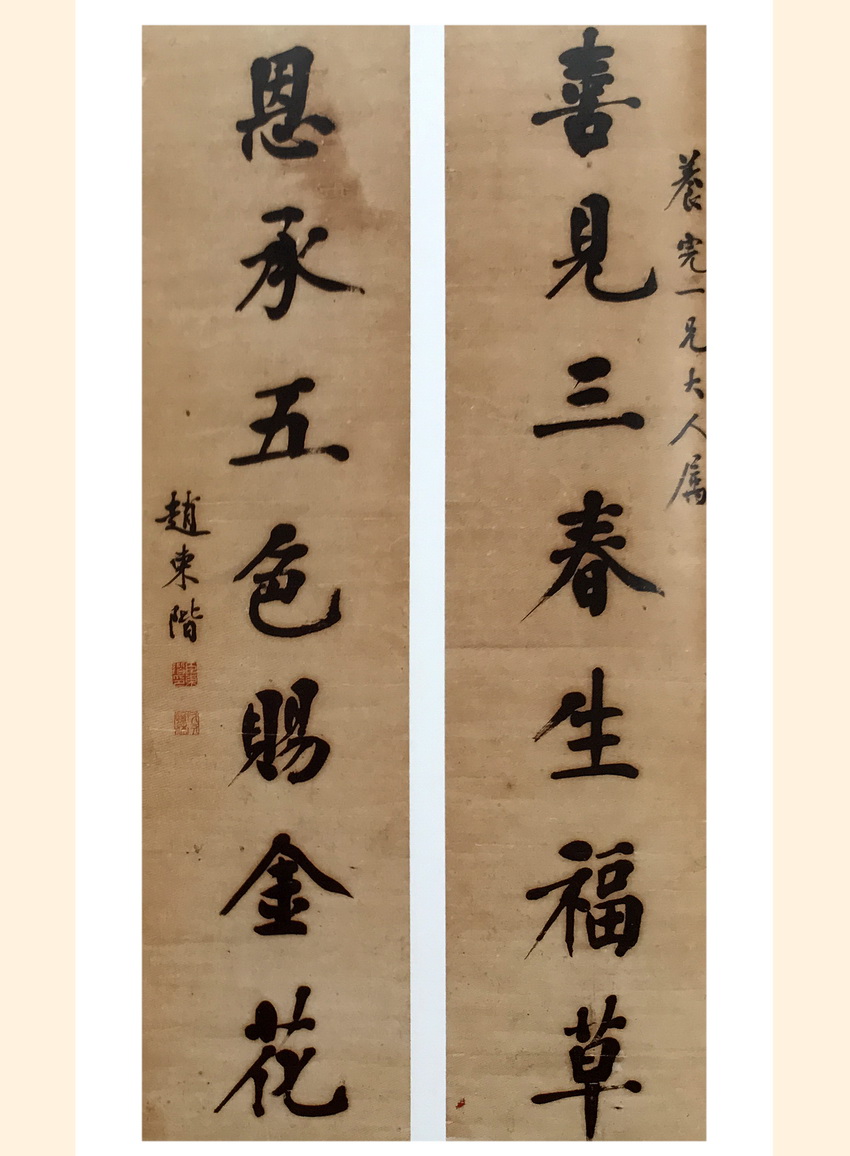 養完一兄大人属
善見三春生福草
恩承五色賜金花
趙東階